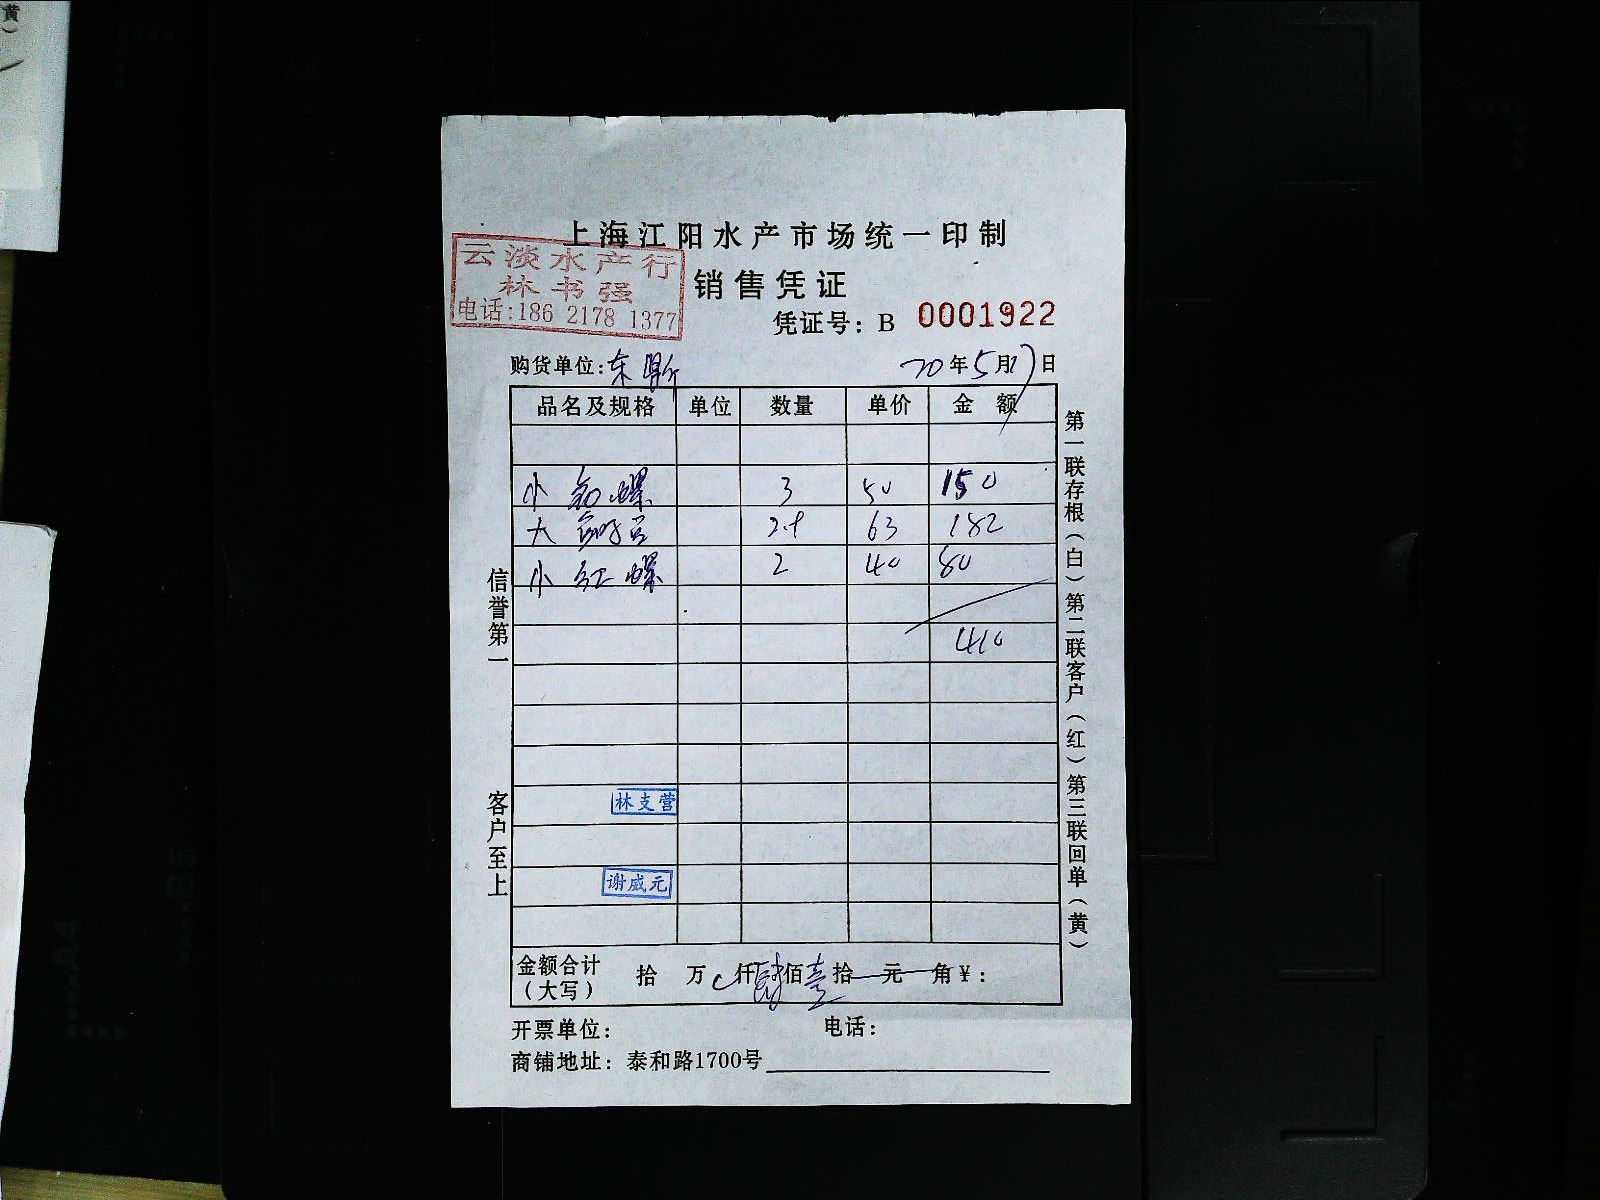 黄
）
上海江阳水产市场统一印制
云淡水产行
林书强
电话:186 2178 1377
销售凭证
凭证号：B 0001922
购货单位:东 20年5月17日
品名及规格 单位 数量 单价 金 额
小 螺 3 50 150
大 63 182
小红螺 2 40 80
410
林支营
谢威元
金额合计（大写） 拾 万 仟肆佰壹拾 元 角￥:
开票单位: 电话:
商铺地址: 泰和路1700号
信誉第一 客户至上
第一联存根（白）第二联客户（红）第三联回单（黄）